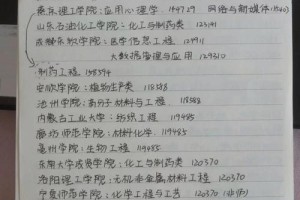 燕京理工学院:应用心理学 149729 网络与新媒体
山东石油化工学院:化工与制药类 123141
成都东软学院:医学信息工程 129911
大数据管理与应用 129310
制药工程 158594
安欣学院:植物生产类 118588
池州学院:高分子材料与工程 118588
内蒙古工业大学:纺织工程 119485
廊坊师范学院:材料化学 119485
亳州学院:生物工程 119485
东南大学成贤学院:化工与制药类 120370
洛阳理工学院:无机非金属材料工程 120370
宁夏师范学院:化学工程与工艺 120370 (非师)